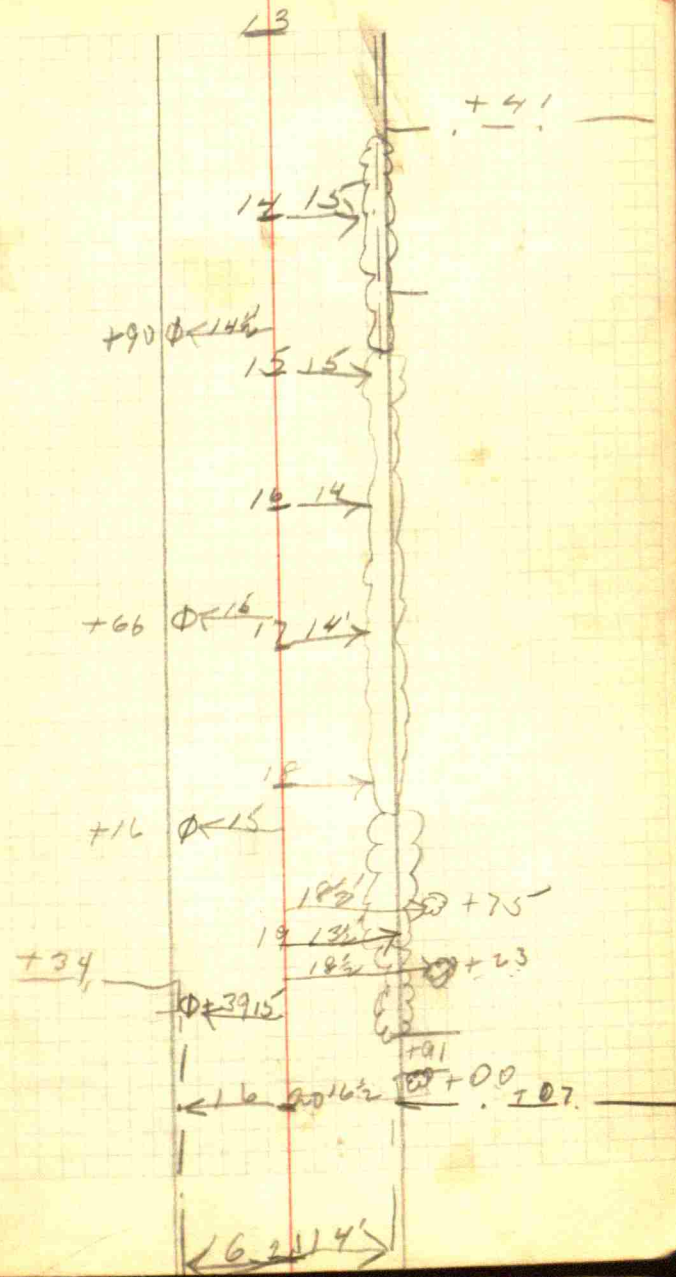 13
+41
14 15'
+90 14½'
15 15'
16 14
+66 16
17 14'
18
+16 15
18½' +75
19 13½'
+34 18½ +23
+39 15'
+91
+00
16 20 16½ +07
16 21 14'